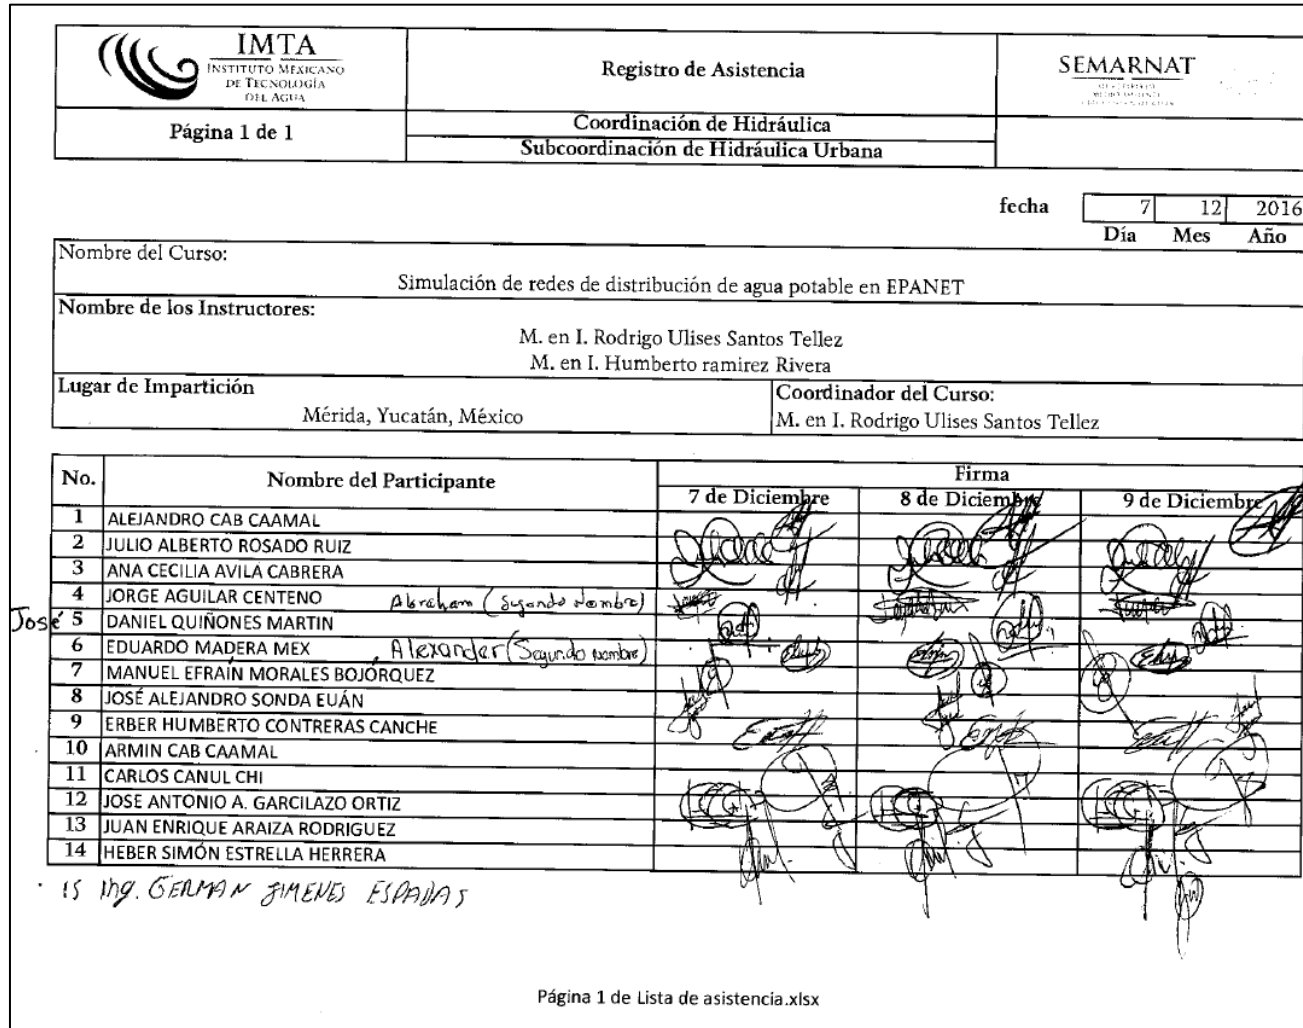 IMTA
INSTITUTO MEXICANO
DE TECNOLOGÍA
DEL AGUA
Registro de Asistencia
SEMARNAT
Página 1 de 1
Coordinación de Hidráulica
Subcoordinación de Hidráulica Urbana
fecha 7 12 2016
Día Mes Año
Nombre del Curso:
Simulación de redes de distribución de agua potable en EPANET
Nombre de los Instructores:
M. en I. Rodrigo Ulises Santos Tellez
M. en I. Humberto ramirez Rivera
Lugar de Impartición
Mérida, Yucatán, México
Coordinador del Curso:
M. en I. Rodrigo Ulises Santos Tellez
No. Nombre del Participante Firma
7 de Diciembre 8 de Diciembre 9 de Diciembre
1 ALEJANDRO CAB CAAMAL
2 JULIO ALBERTO ROSADO RUIZ
3 ANA CECILIA AVILA CABRERA
4 JORGE AGUILAR CENTENO Abraham (Segundo Nombre)
José 5 DANIEL QUIÑONES MARTIN
6 EDUARDO MADERA MEX Alexander (Segundo nombre)
7 MANUEL EFRAÍN MORALES BOJÓRQUEZ
8 JOSÉ ALEJANDRO SONDA EUÁN
9 ERBER HUMBERTO CONTRERAS CANCHE
10 ARMIN CAB CAAMAL
11 CARLOS CANUL CHI
12 JOSE ANTONIO A. GARCILAZO ORTIZ
13 JUAN ENRIQUE ARAIZA RODRIGUEZ
14 HEBER SIMÓN ESTRELLA HERRERA
15 Ing. GERMAN JIMENES ESPADAS
Página 1 de Lista de asistencia.xlsx